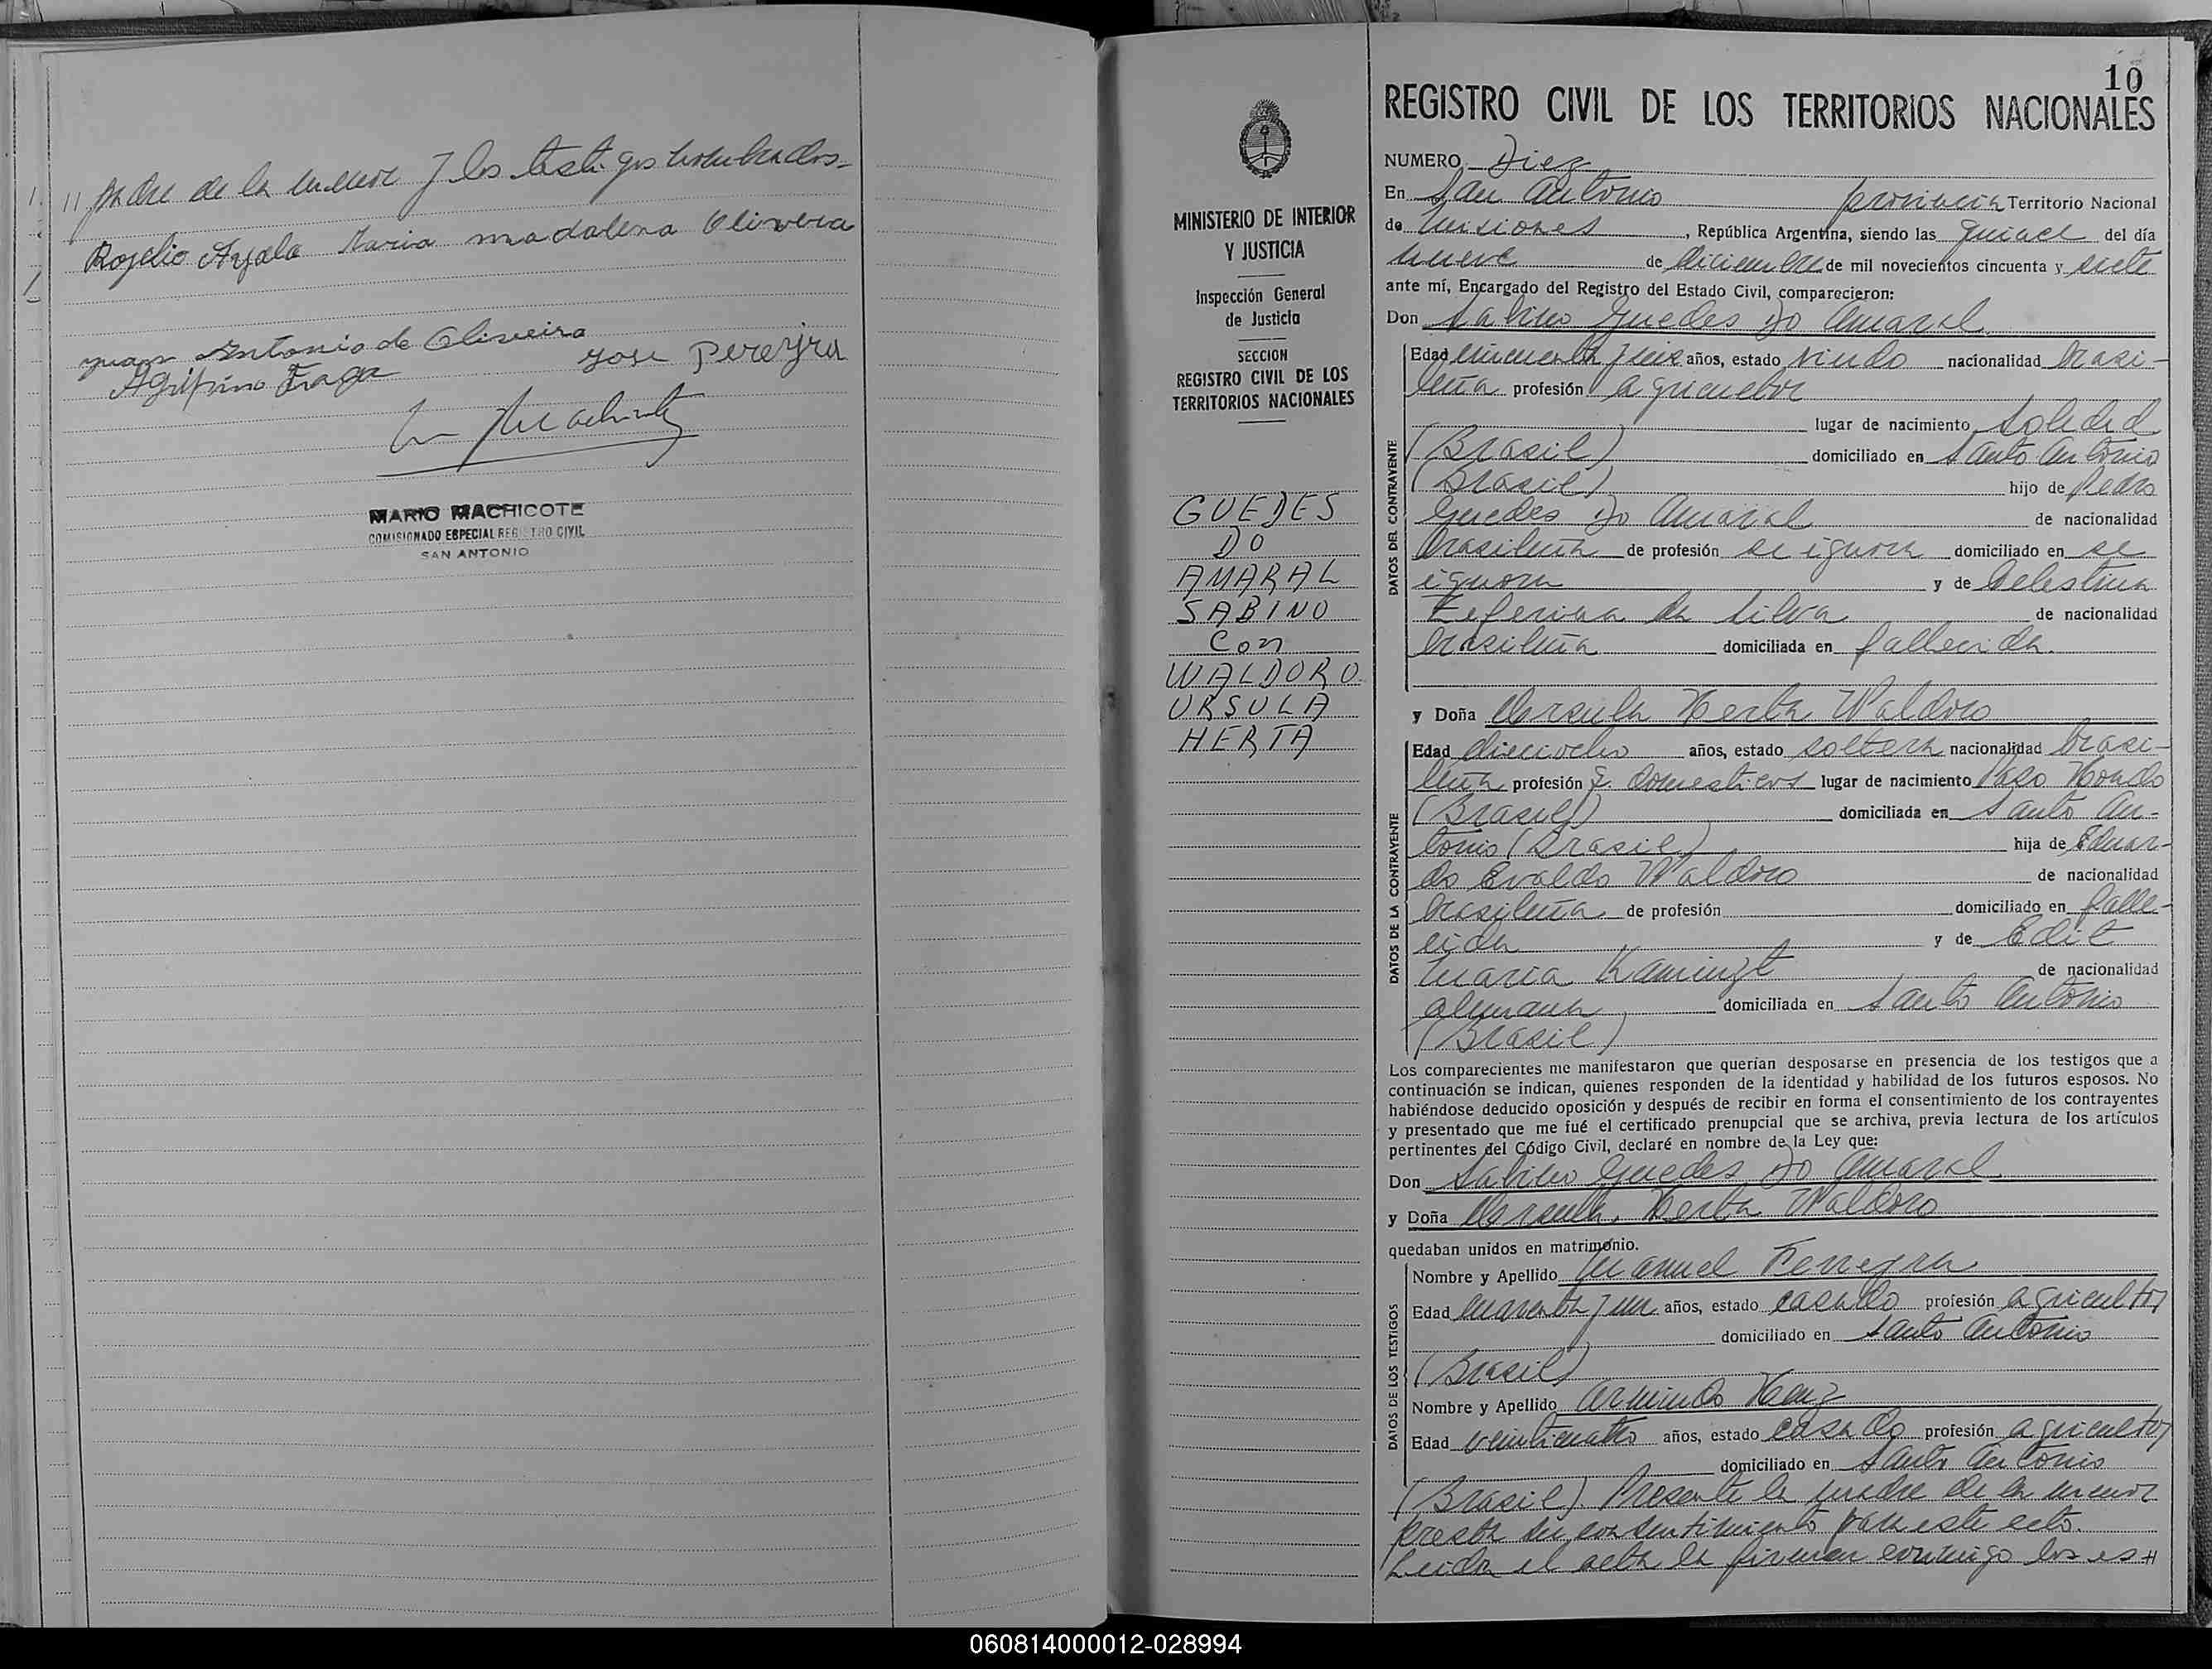 padre de la menor y los testigos nombrados.-
Rogelio Ayala Maria madalena Olivera
Juan Antonio de Oliveira
Jose Pereyra
Agripino Fraga
MARIO MACHICOTE
COMISIONADO ESPECIAL REGISTRO CIVIL
SAN ANTONIO
MINISTERIO DE INTERIOR
Y JUSTICIA
Inspección General
de Justicia
SECCION
REGISTRO CIVIL DE LOS
TERRITORIOS NACIONALES
GUEDES
DO
AMARAL
SABINO
Con
WALDORO
URSULA
HERTA
10
REGISTRO CIVIL DE LOS TERRITORIOS NACIONALES
NUMERO Diez
En San Antonio provincia Territorio Nacional
de Misiones, República Argentina, siendo las quince del día
nueve de diciembre de mil novecientos cincuenta y siete
ante mí, Encargado del Registro del Estado Civil, comparecieron:
Don Sabino Guedes Do Amaral
DATOS DEL CONTRAYENTE
Edad cincuenta y seis años, estado viudo nacionalidad brasi-
leña profesión agricultor
lugar de nacimiento Soledad
(Brasil) domiciliado en Santo Antonio
(Brasil) hijo de Pedro
Guedes Do Amaral de nacionalidad
brasileña de profesión se ignora domiciliado en se
ignora y de Celestina
Zeferina da Silva de nacionalidad
brasileña domiciliada en fallecida.
y Doña Ursula Herta Waldoro
DATOS DE LA CONTRAYENTE
Edad dieciocho años, estado soltera nacionalidad brasi-
leña profesión q. domesticos lugar de nacimiento Paso Hondo
(Brasil) domiciliada en Santo An-
tonio (Brasil) hija de Eduar-
do Evaldo Waldoro de nacionalidad
brasileña de profesión domiciliado en falle-
cido y de Edit
Maria Kamingt de nacionalidad
alemana domiciliada en Santo Antonio
(Brasil)
Los comparecientes me manifestaron que querían desposarse en presencia de los testigos que a
continuación se indican, quienes responden de la identidad y habilidad de los futuros esposos. No
habiéndose deducido oposición y después de recibir en forma el consentimiento de los contrayentes
y presentado que me fué el certificado prenupcial que se archiva, previa lectura de los artículos
pertinentes del Código Civil, declaré en nombre de la Ley que:
Don Sabino Guedes Do Amaral
y Doña Ursula Herta Waldoro
quedaban unidos en matrimonio.
DATOS DE LOS TESTIGOS
Nombre y Apellido Manuel Ferreyra
Edad cuarenta y un años, estado casado profesión agricultor
domiciliado en Santo Antonio
(Brasil)
Nombre y Apellido Armindo
Edad veinticuatro años, estado casado profesión agricultor
domiciliado en Santo Antonio
(Brasil) Presente la madre de la menor
presta su consentimiento para este acto.
Leida el acta la firman conmigo los es
060814000012-028994